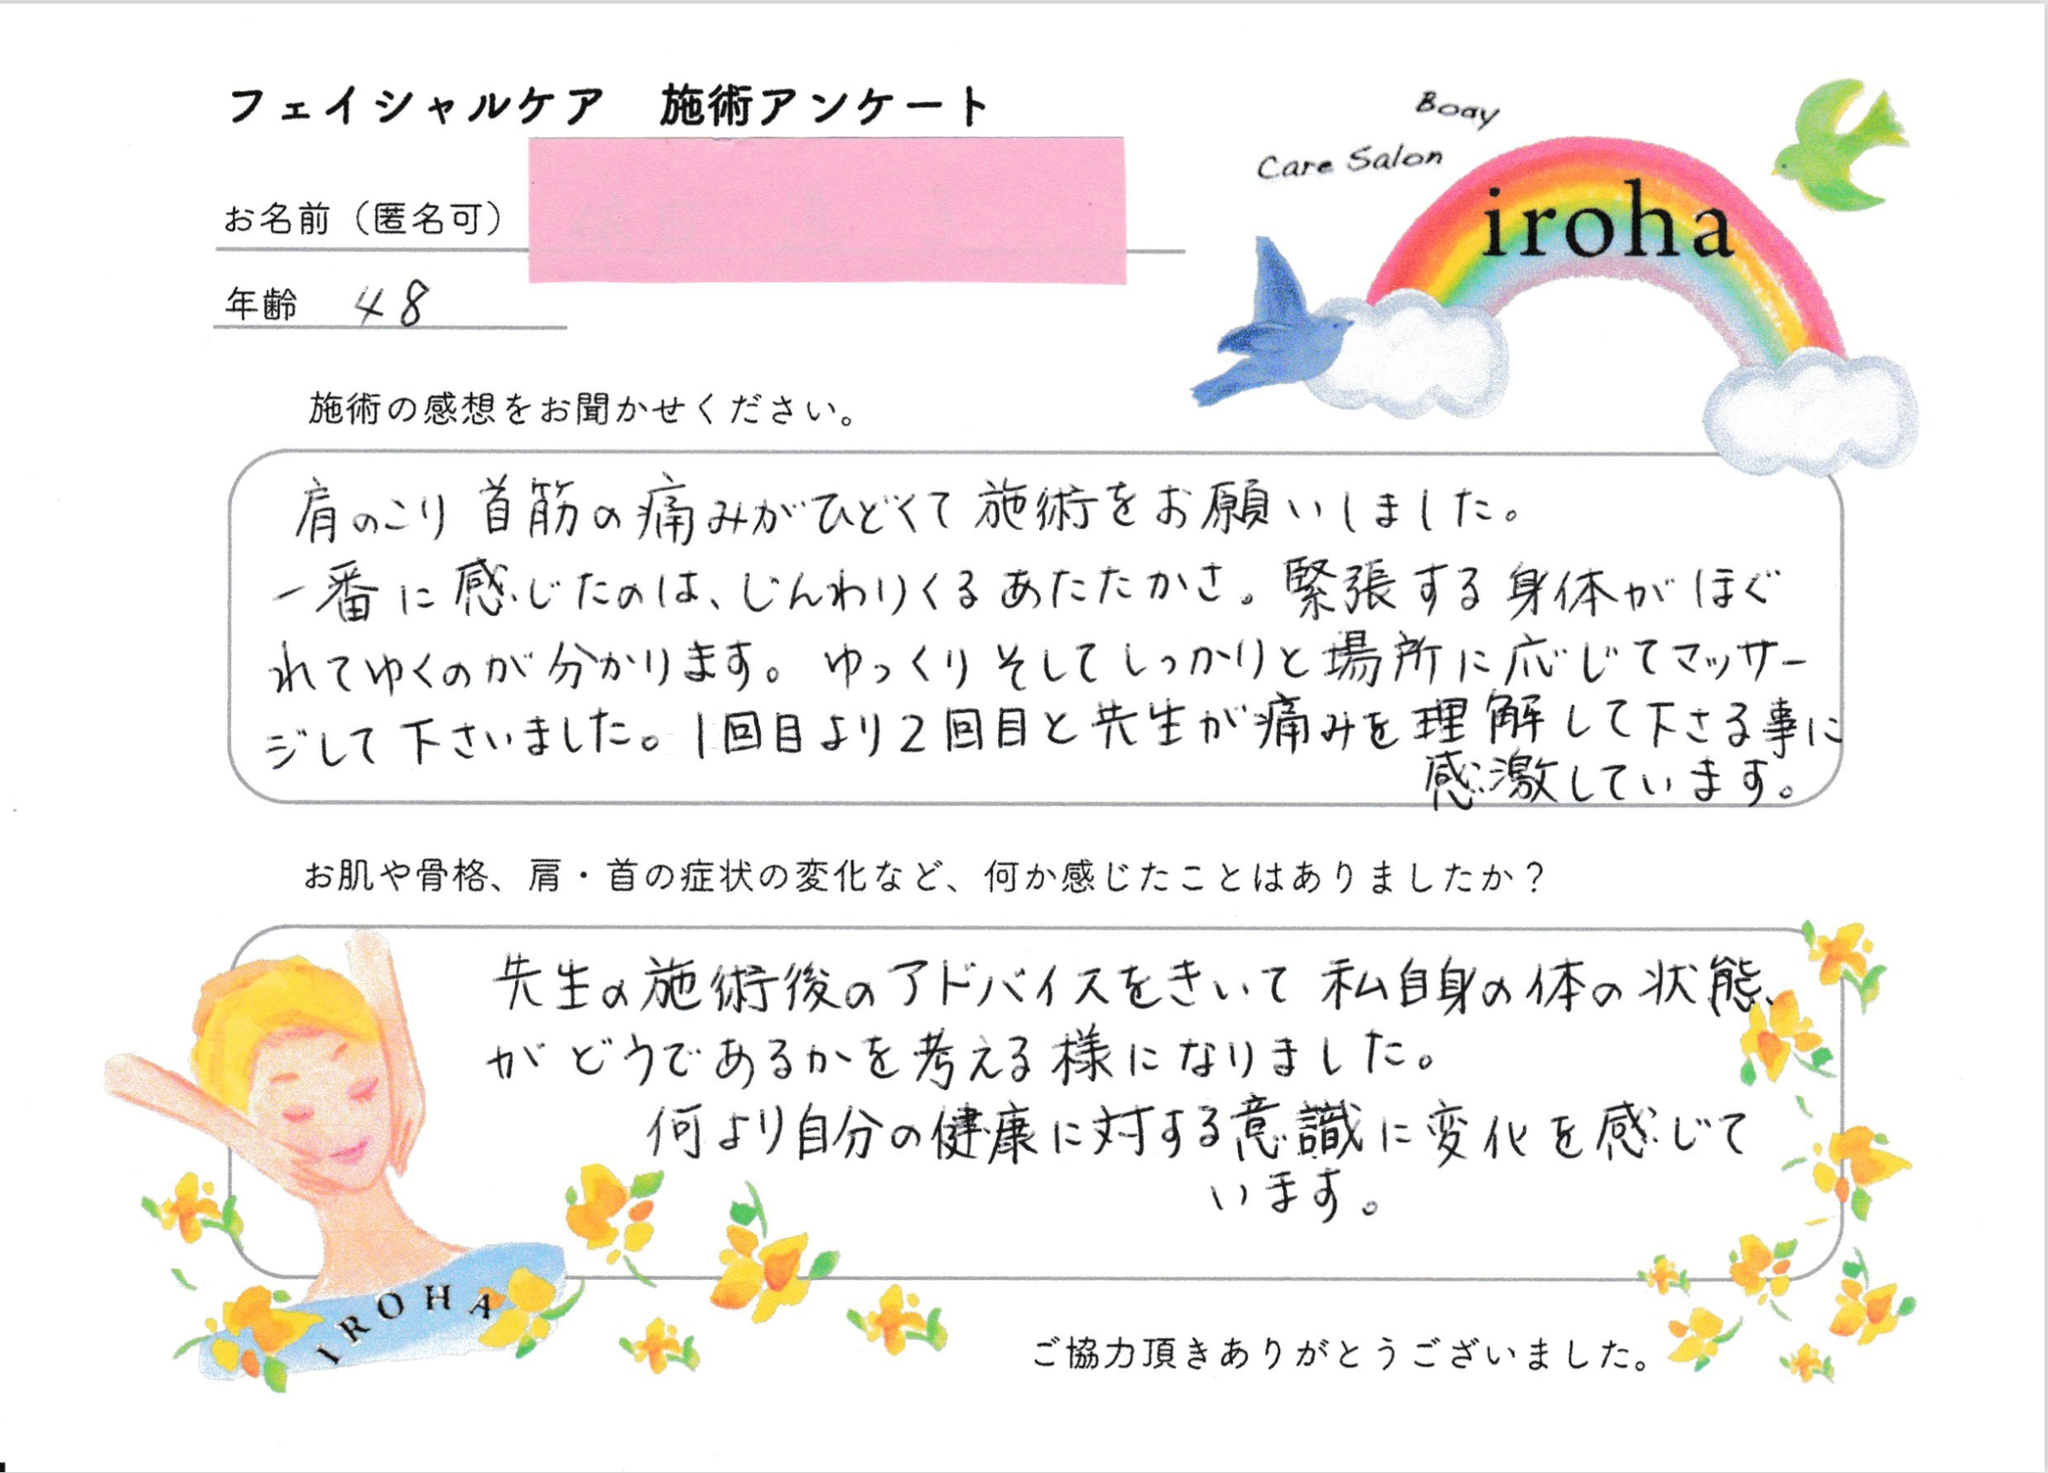 フェイシャルケア　施術アンケート
Boay
Care Salon
iroha
お名前（匿名可）
年齢　48
施術の感想をお聞かせください。
肩のこり 首筋の痛みがひどくて 施術をお願いしました。
一番に感じたのは、じんわりくるあたたかさ。緊張する身体がほぐ
れてゆくのが分かります。ゆっくりそしてしっかりと場所に応じてマッサー
ジして下さいました。1回目より2回目と先生が痛みを理解して下さる事に
感激しています。
お肌や骨格、肩・首の症状の変化など、何か感じたことはありましたか？
先生の施術後のアドバイスをきいて 私自身の体の状態、
がどうであるかを考える様になりました。
何より自分の健康に対する意識に変化を感じて
います。
IROHA
ご協力頂きありがとうございました。